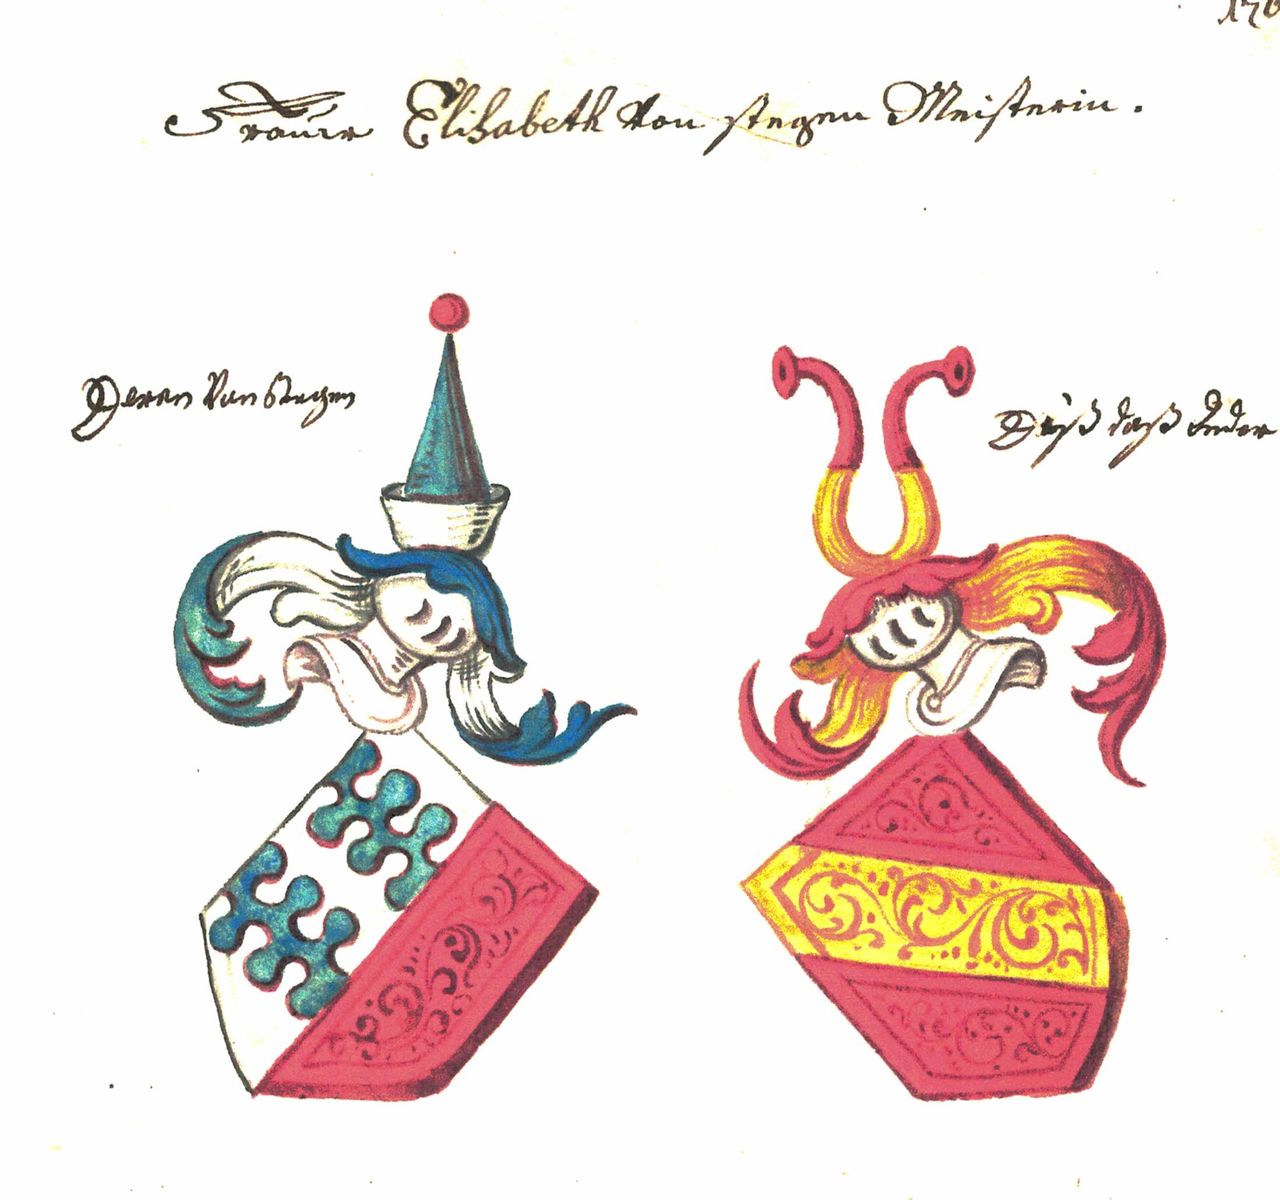 176
Frauw Elisabeth von stegen Meisterin.
Deren Von Stegen
Diß daß Ander